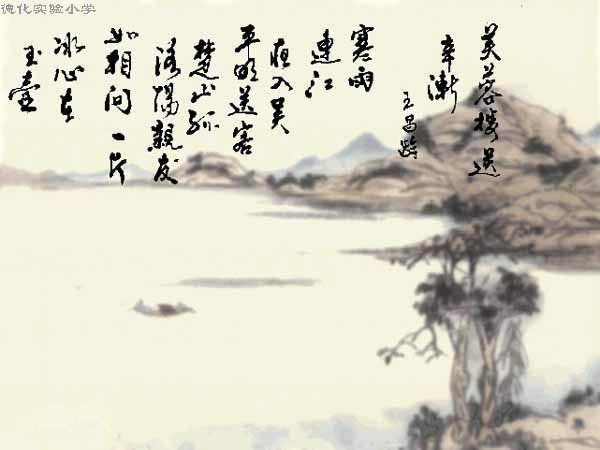 德化实验小学
芙蓉楼送
辛渐
王昌龄
寒雨
连江
夜入吴
平明送客
楚山孤
洛阳亲友
如相问一片
冰心在
玉壶